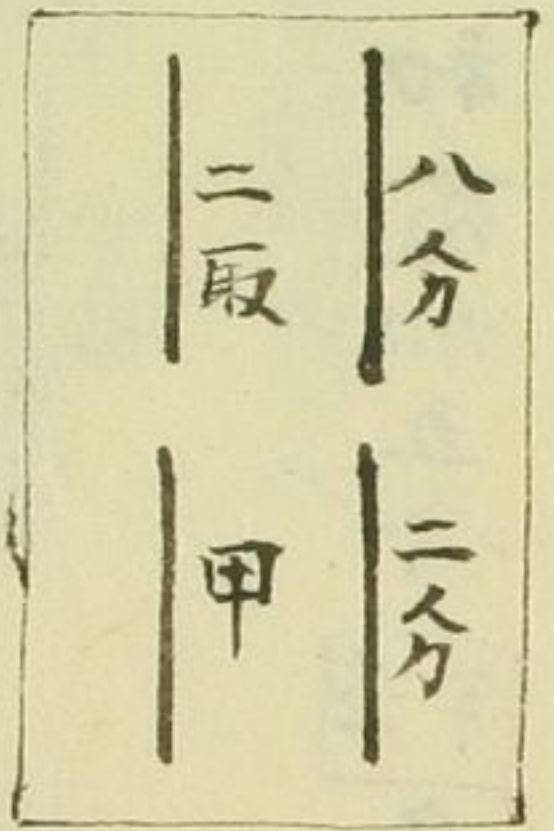 八分
二分
二取
甲